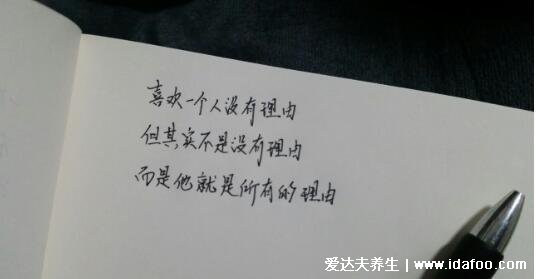 喜欢一个人没有理由
但其实不是没有理由
而是他就是所有的理由
爱达夫养生 | www.idafoo.com